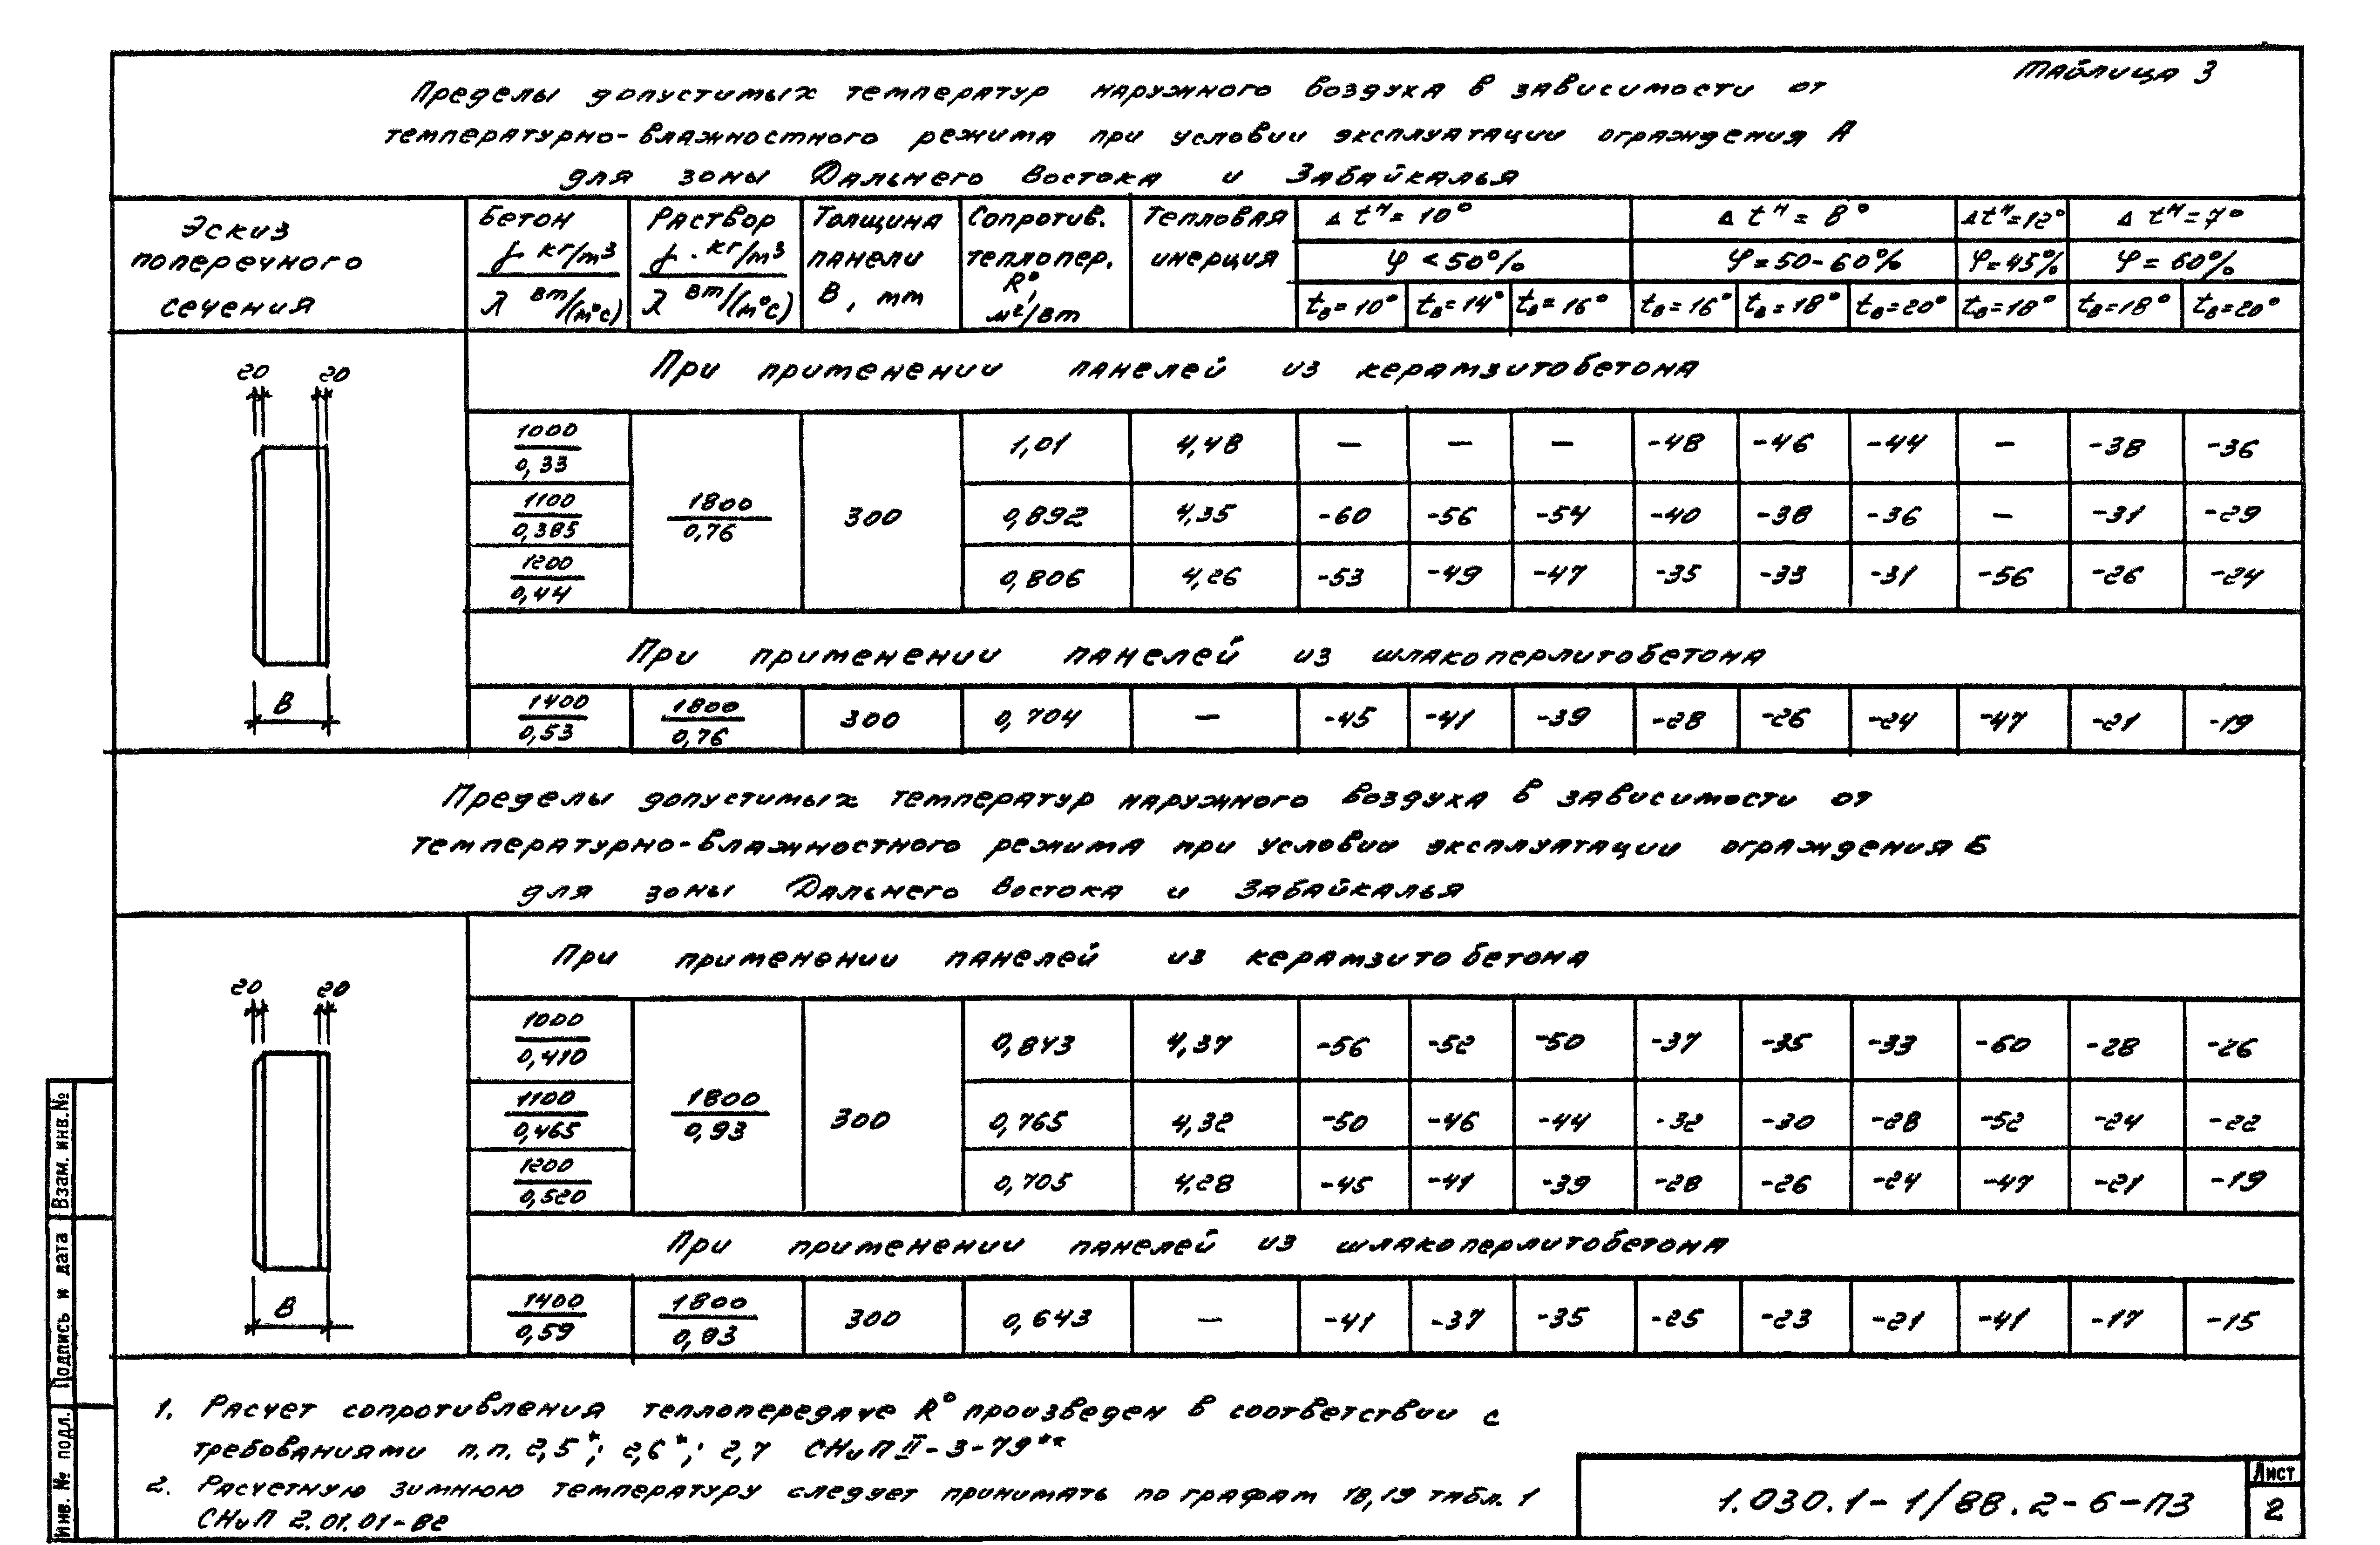 Таблица 3
Пределы допустимых температур наружного воздуха в зависимости от
температурно-влажностного режима при условии эксплуатации ограждения А
для зоны Дальнего Востока и Забайкалья
Эскиз поперечного сечения | Бетон γ кг/м3 / λ вт/(м°с) | Раствор γ. кг/м3 / λ вт/(м°с) | Толщина панели В, мм | Сопротив. теплопер. R°, м²/вт | Тепловая инерция | Δtᴴ=10° | Δtᴴ=8° | Δtᴴ=12° | Δtᴴ=7°
φ<50% | φ=50-60% | φ=45% | φ=60%
tв=10° | tв=14° | tв=16° | tв=16° | tв=18° | tв=20° | tв=18° | tв=18° | tв=20°
20 20
В
При применении панелей из керамзитобетона
1000/0,33 | 1800/0,76 | 300 | 1,01 | 4,48 | — | — | — | -48 | -46 | -44 | — | -38 | -36
1100/0,385 | 0,892 | 4,35 | -60 | -56 | -54 | -40 | -38 | -36 | — | -31 | -29
1200/0,44 | 0,806 | 4,26 | -53 | -49 | -47 | -35 | -33 | -31 | -56 | -26 | -24
При применении панелей из шлакоперлитобетона
1400/0,53 | 1800/0,76 | 300 | 0,704 | — | -45 | -41 | -39 | -28 | -26 | -24 | -47 | -21 | -19
Пределы допустимых температур наружного воздуха в зависимости от
температурно-влажностного режима при условии эксплуатации ограждения Б
для зоны Дальнего Востока и Забайкалья
20 20
В
При применении панелей из керамзитобетона
1000/0,410 | 1800/0,93 | 300 | 0,843 | 4,37 | -56 | -52 | -50 | -37 | -35 | -33 | -60 | -28 | -26
1100/0,465 | 0,765 | 4,32 | -50 | -46 | -44 | -32 | -30 | -28 | -52 | -24 | -22
1200/0,520 | 0,705 | 4,28 | -45 | -41 | -39 | -28 | -26 | -24 | -47 | -21 | -19
При применении панелей из шлакоперлитобетона
1400/0,59 | 1800/0,93 | 300 | 0,643 | — | -41 | -37 | -35 | -25 | -23 | -21 | -41 | -17 | -15
1. Расчет сопротивления теплопередаче R° произведен в соответствии с
требованиями п.п. 2,5*; 2,6*; 2,7 СНиП II-3-79**
2. Расчетную зимнюю температуру следует принимать по графам 18,19 табл. 1
СНиП 2.01.01-82
1.030.1-1/88.2-6-ПЗ
Лист
2
Инв. № подл.
Подпись и дата
Взам. инв.№